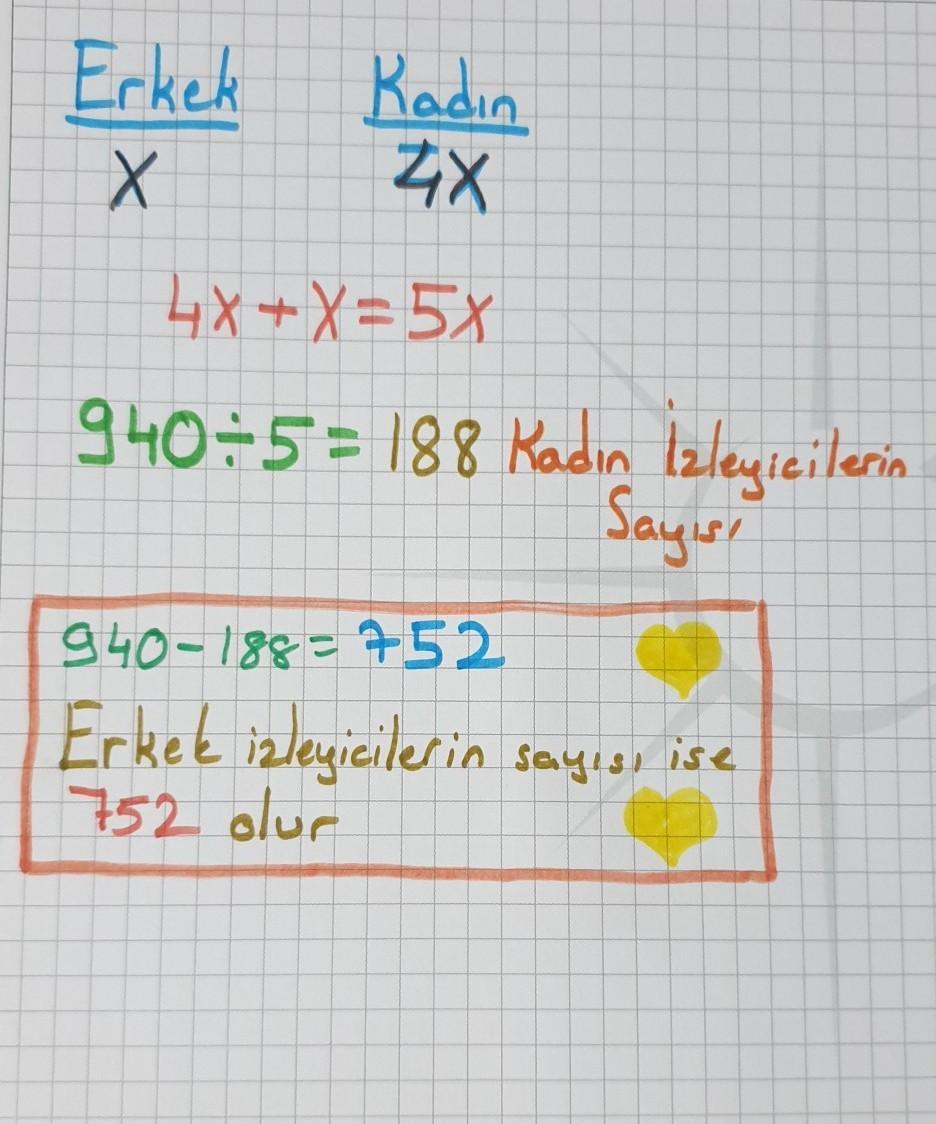 Erkek Kadın
X 4X
4X + X = 5X
940÷5 = 188 Kadın İzleyicilerin
Sayısı
940-188= 752
Erkek izleyicilerin sayısı ise
752 olur